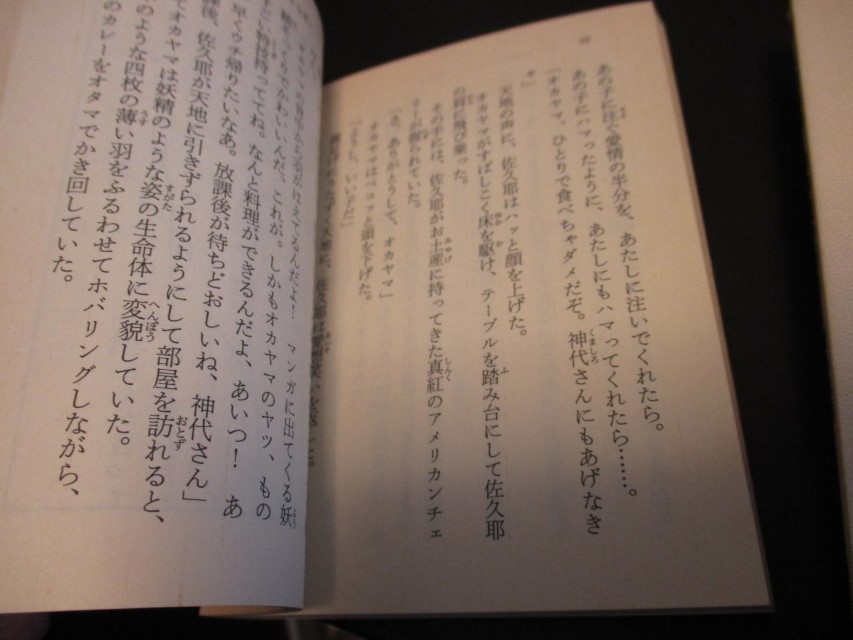 あの子に注ぐ愛情の半分を、あたしに注いでくれたら。
あの子にハマったように、あたしにもハマってくれたら……。
「オカヤマ、ひとりで食べちゃダメだぞ。神代さんにもあげなき
ゃ」
天地の声に、佐久耶はハッと顔を上げた。
オカヤマがすばしこく床を駆け、テーブルを踏み台にして佐久耶
の肩に飛び乗った。
その手には、佐久耶がお土産に持ってきた真紅のアメリカンチェ
リーが握られていた。
「さ、ありがとうして、オカヤマ」
オカヤマはペコッと頭を下げた。
「ようし、いい子だ」
天地に、佐久耶は
はえてるんだよ！　マンガに出てくる妖
かわいいんだ、これが。しかもオカヤマのヤツ、もの
持ってってね。なんと料理ができるんだよ、あいつ！　あ
早くウチ帰りたいなあ。放課後が待ちどおしいね、神代さん」
後、佐久耶が天地に引きずられるようにして部屋を訪れると、
オカヤマは妖精のような姿の生命体に変貌していた。
のような四枚の薄い羽をふるわせてホバリングしながら、
のカレーをオタマでかき回していた。